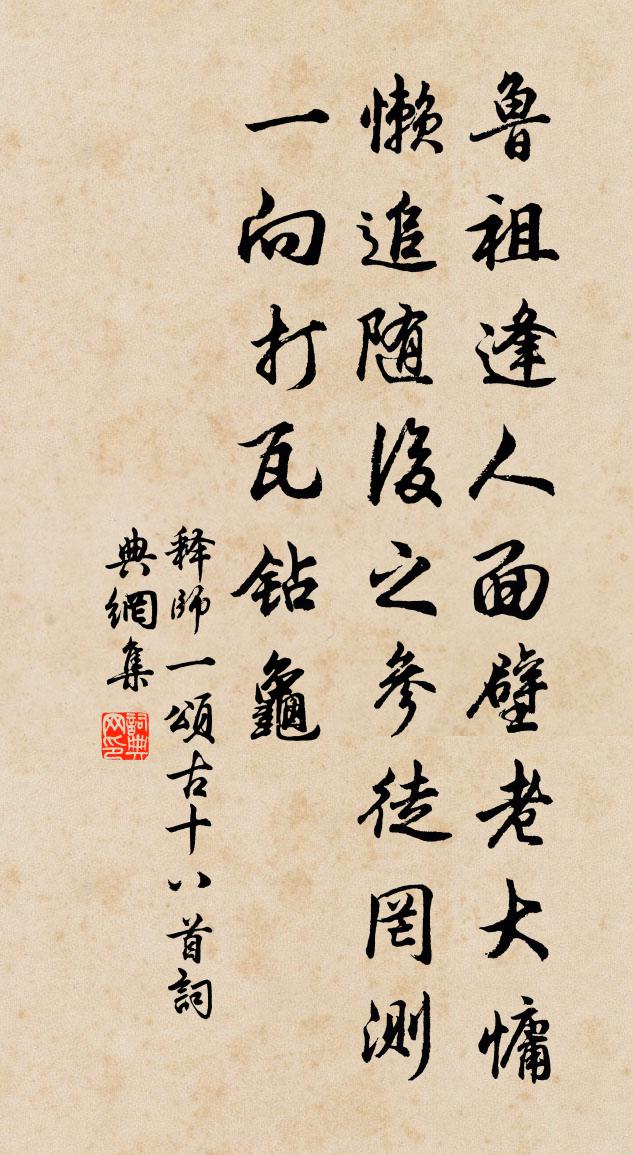 鲁祖逢人面壁老大慵
懒追随後之参徒罔测
一向打瓦钻龜
释師一頌古十八首詞
典網集
詞典网印